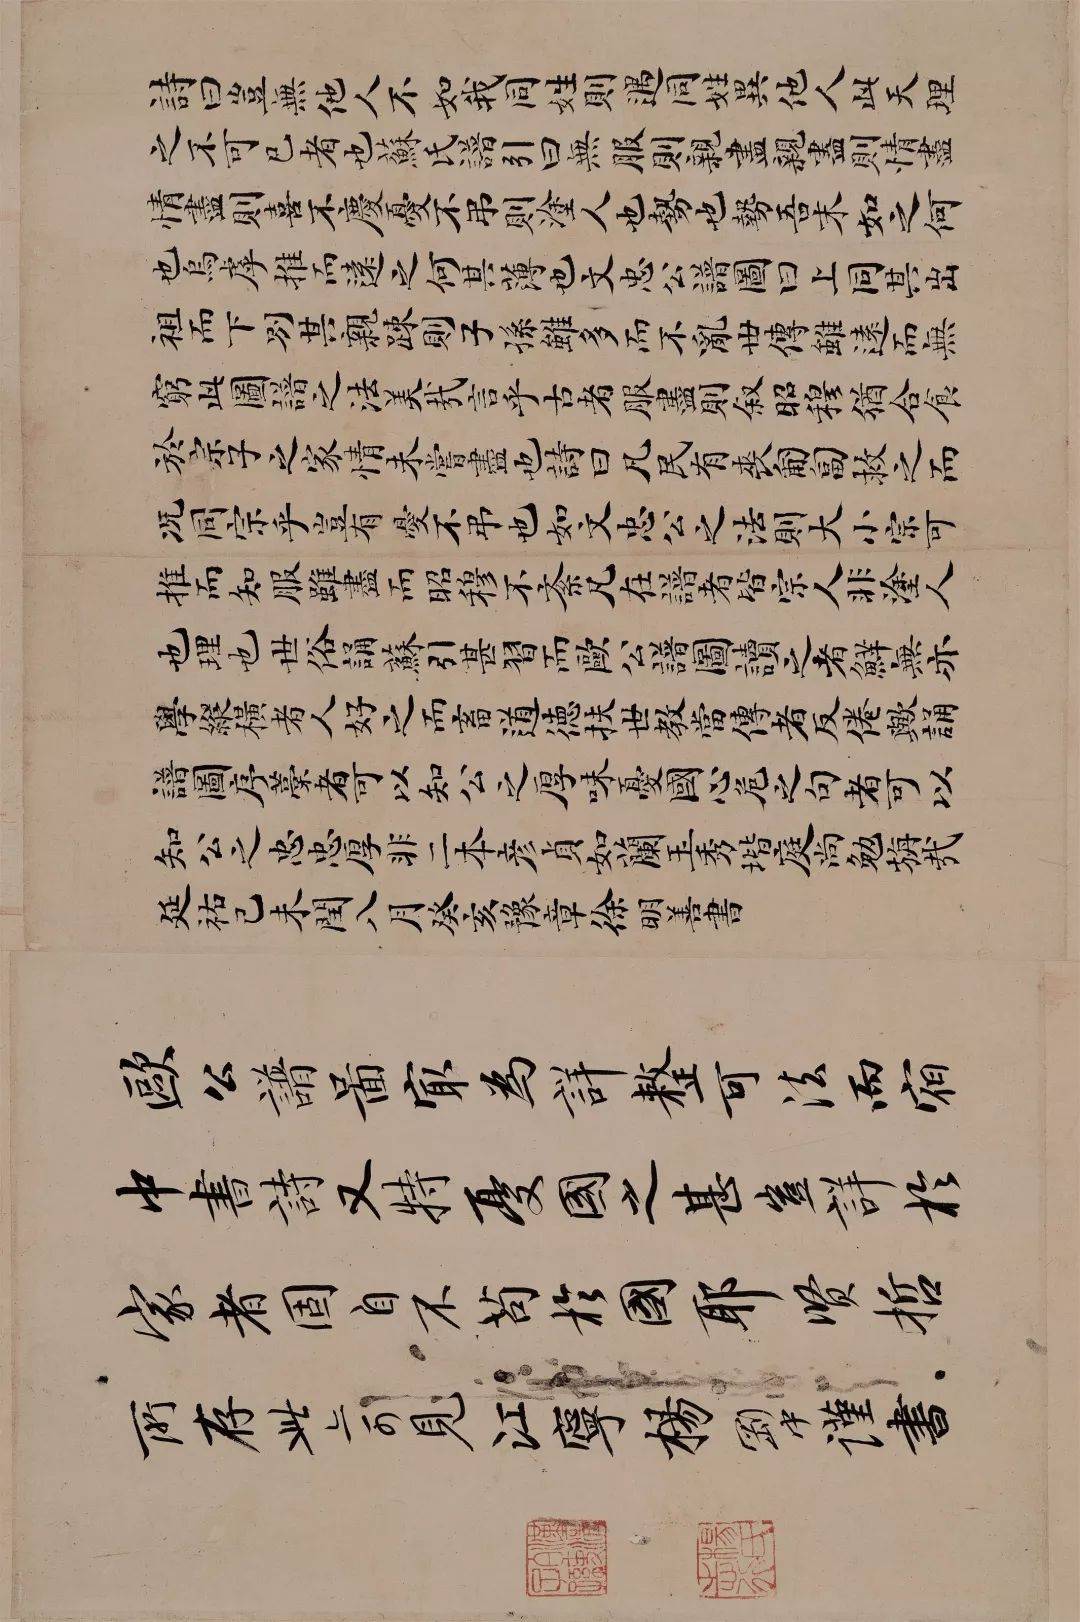 詩曰豈無他人不如我同姓則遇同姓異他人此天理
之不可已者也蘇氏譜引曰無服則親盡親盡則情盡
情盡則喜不慶憂不吊則塗人也勢也勢吾末如之何
也烏虖推而遠之何其薄也文忠公譜圖曰上同其出
祖而下別其親踈則子孫雖多而不亂世傳雖遠而無
窮此圖譜之法美哉言乎古者服盡則叙昭穆猶合食
於宗子之家情未嘗盡也詩曰凡民有喪匍匐救之而
况同宗乎豈有憂不吊也如文忠公之法則大小宗可
推而知服雖盡而昭穆不紊凡在譜者皆宗人非塗人
也理也世俗誦蘇引甚習而歐公譜圖讀之者鮮無亦
學縱橫者人好之而畜道德扶世教當傳者反倦歟誦
譜圖序藁者可以知公之厚味憂國心危之句者可以
知公之忠忠厚非二本彦貞如蘭玉秀堦庭尚勉旃哉
延祐己未閏八月癸亥豫章徐明善書
歐公譜啚冣為詳整可法而宿
中書詩又特憂國之甚豈詳於
家者固自不苟於國耶贤哲
所存此亦可見江寧楊剛中謹書